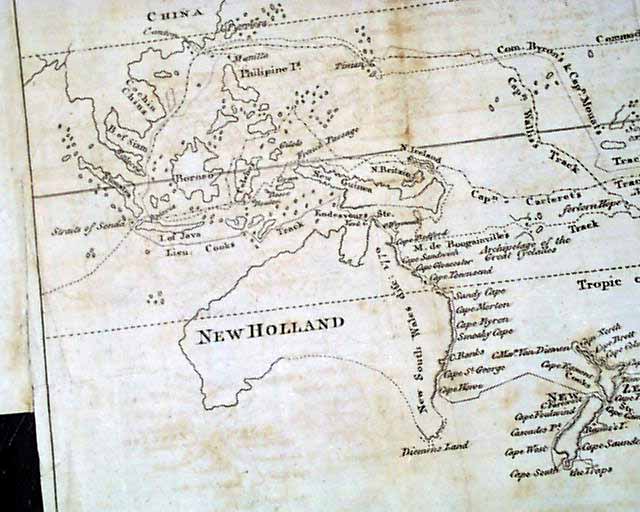 CHINA
Canton
Manilla
Philipine Is.
Tinian
Cochin China
B. of Siam
Borneo
Straits of Sunda
I. of Java
Lieu. Cooks Track
New Guinea
N. Ireland
N. Britain
Endeavours Str.
Com. Byron's & Cap. Mouat's
Commod
Cap. Wallis's Track
Capn. Carteret's
Track
M. de Bougainville's
Track
Archipelago of the
Great Cyclades
forlorn Hope
Tropic
Cape Sandwich
Cape Gloucester
Cape Townsend
Sandy Cape
Cape Morton
Cape Byron
Smoaky Cape
C. Banks
Cape St. George
Cape Howe
New South Wales disc. 1770
NEW HOLLAND
Diemens Land
C. Ma. Van Diemen
Cape North
Cape Brett
NEW
ZE
Cape Foulwind
Cascades Pt.
Cape West
Cape South
the Traps
Banks's I.
Cape Saunders